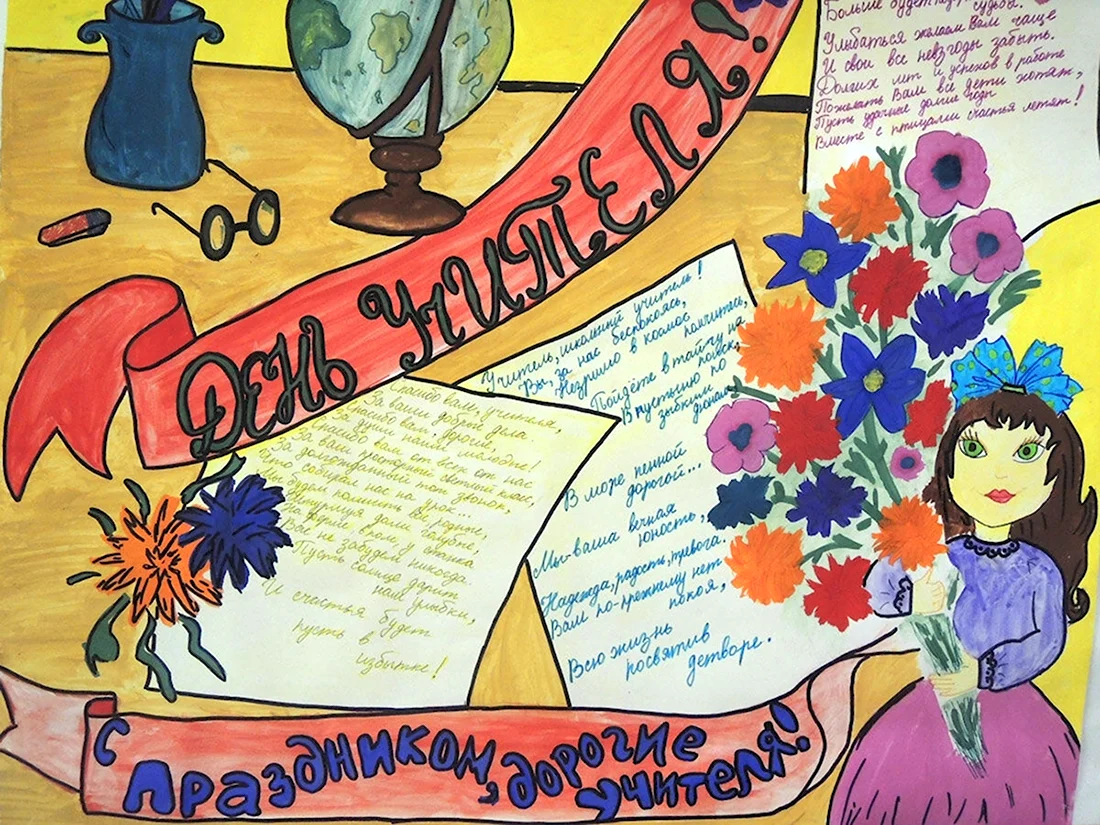 ДЕНЬ УЧИТЕЛЯ!
Больше будет
судьбы.
Улыбаться желаем Вам чаще
И свои все невзгоды забыть.
Долгих лет и успехов в работе
Пожелать Вам все дети хотят,
Пусть удачные долгие годы
Вместе с птицами счастья летят!
Учитель, школьный учитель!
Вы, за нас беспокоясь,
Незримо в космос
мчитесь,
Пойдёте в тайгу на
поиск,
В пустыню по
зыбким
дюнам
В море пенной
дорогой...
Мы-ваша вечная
юность,
Надежда, радость, тревога.
Вам по-прежнему нет
покоя,
Всю жизнь
посвятив
детворе.
Спасибо вам, учителя,
За ваши добрые дела.
Спасибо вам, дорогие,
За душ наших молодые!
Спасибо вам от всех от нас
За ваш просторный светлый класс,
За долгожданный тот звонок,
Что собирал нас на урок...
Мы будем помнить Вс, родные,
не забудем никогда.
Пусть солнце дарит
нам улыбки,
И счастья будет
пусть в
избытке!
С Праздником, дорогие
учителя!